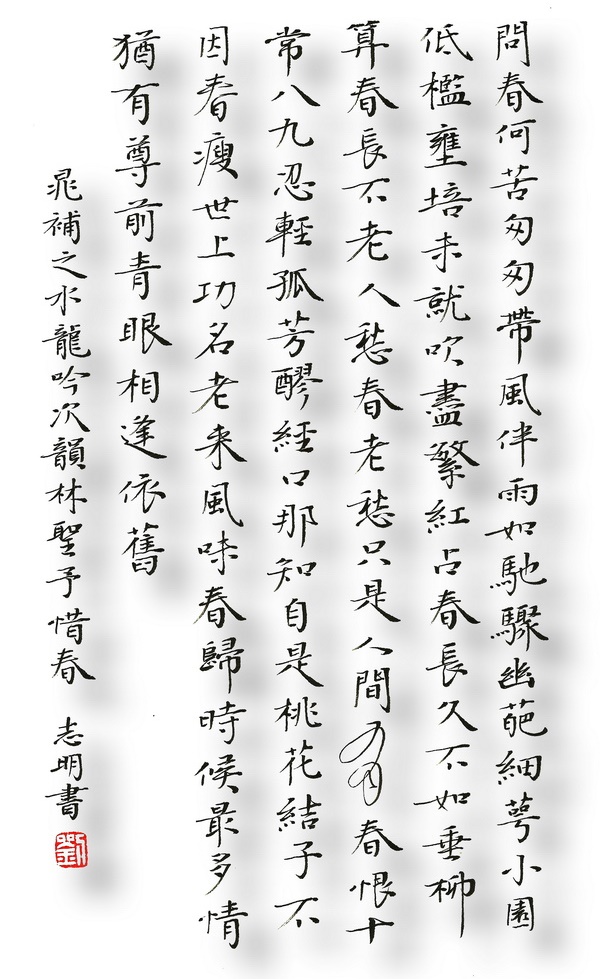 問春何苦匆匆帶風伴雨如馳驟幽葩細萼小園
低檻壅培未就吹盡繁紅占春長久不如垂柳
算春長不老人愁春老愁只是人間有春恨十
常八九忍輕孤芳醪經口那知自是桃花結子不
因春瘦世上功名老来風味春歸時候最多情
猶有尊前青眼相逢依舊
晁補之水龍吟次韻林聖予惜春 志明書
劉